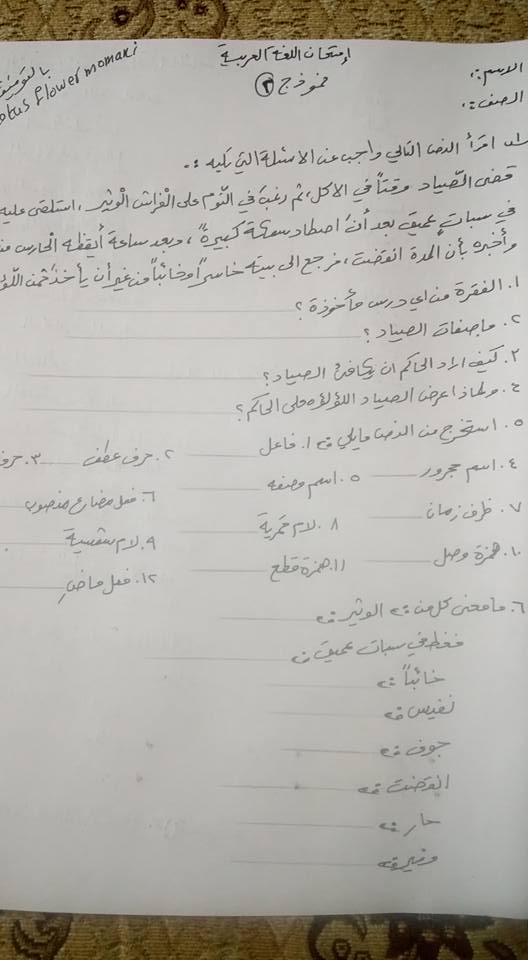 إمتحان اللغة العربية
نموذج ٢
الاسم:
الصف:
بالتوفيق
lotus flower momani
س١ اقرأ النص التالي واجب عن الاسئلة التي تليه :-
قضى الصّياد وقتاً في الاكل، ثم رغبَ في النّوم على الفراش الوثير، استلقى عليه
في سباتٍ عميق بعد أن اصطاد سمكة كبيرةً، وبعد ساعة أيقظه الحارس
وأخبره بأن المدة انقضت، فرجع الى بيته خاسراً وخائباً من غير أن يأخذ ثمن اللؤلؤ
١. الفقرة من اي درس مأخوذة؟
٢. ما صفات الصياد؟
٣. كيف اراد الحاكم ان يكافئ الصياد؟
٤. ولماذا عرض الصياد اللؤلؤه على الحاكم؟
٥. استخرج من النص ما يلي: ١. فاعل ٢. حرف عطف ٣. حرف
٤. اسم مجرور ٥. اسم وصفه ٦. فعل مضارع منصوب
٧. ظرف زمان ٨. لام قمرية ٩. لام شمسية
١٠. همزة وصل ١١. همزة قطع ١٢. فعل ماضِ
٦. ما معنى كل من: الوثير:
فغط في سبات عميق:
خائباً:
نفيس:
جوف:
انقضت:
حار:
وفير: